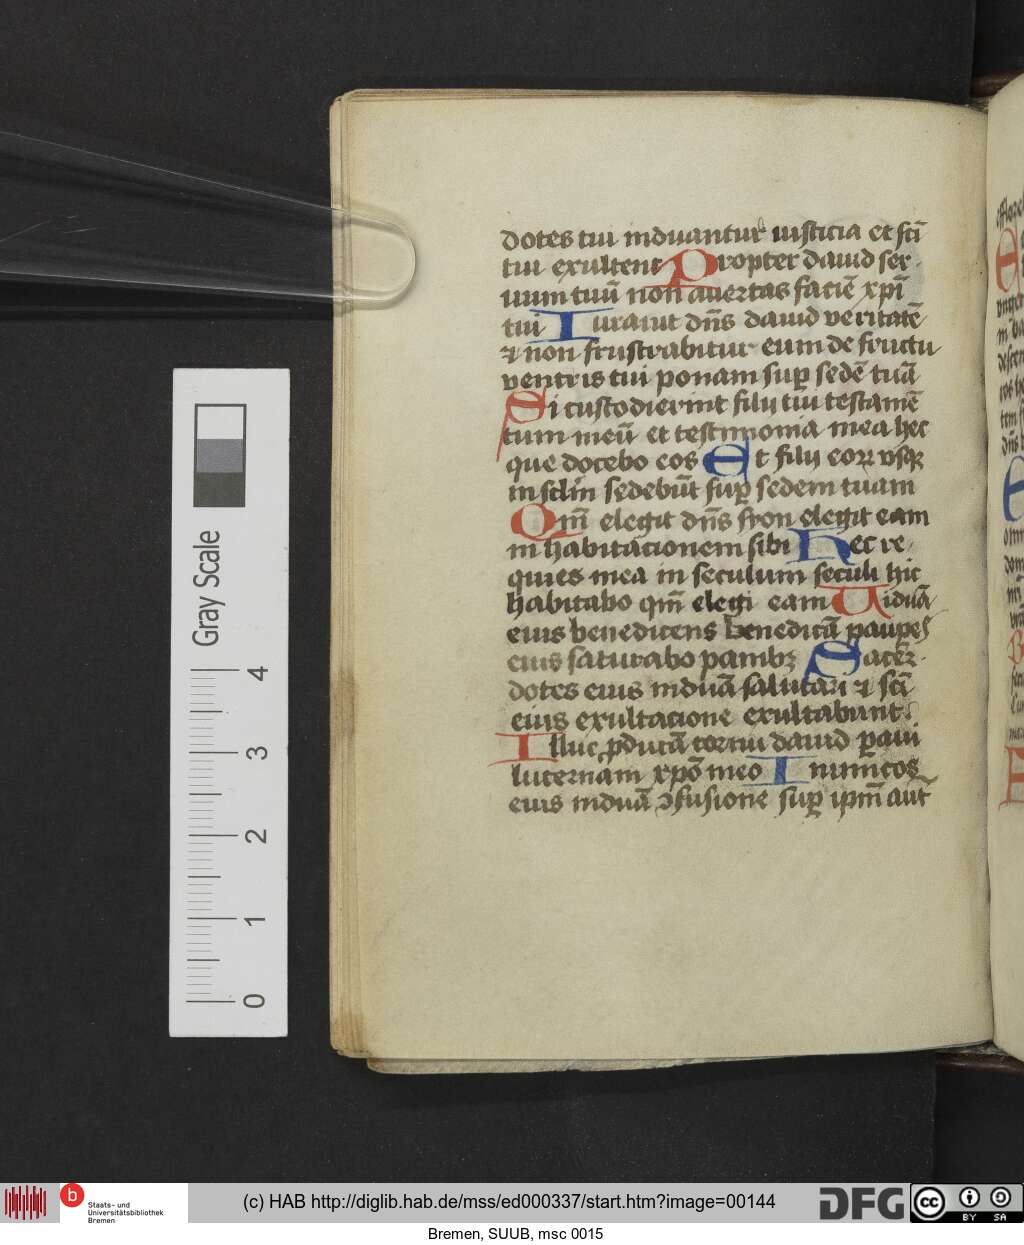 dotes tui induantur iusticia et sc̄i
tui exultent Propter dauid ser
uum tuū non auertas faciē xp̄i
tui Iurauit dn̄s dauid veritatē
⁊ non frustrabitur eum de fructu
ventris tui ponam sup̱ sedē tuā
Si custodierint filij tui testamē
tum meū et testimonia mea hec
que docebo eos Et filij eoꝝ vsqꝫ
in sclm̄ sedebūt sup̱ sedem tuam
Qm̄ elegit dn̄s syon elegit eam
in habitacionem sibi Hec re
quies mea in seculum seculi hic
habitabo qm̄ elegi eam Uiduā
eius benedicens benedicā paupes
eius saturabo panibꝫ Sacer
dotes eius induā salutari ⁊ sc̄i
eius exultacione exultabunt
Illuc ꝓducā cornu dauid paui
lucernam xp̄o meo Inimicos
eius induā ꝯfusione sup̱ ipm̄ aut̄
Gray Scale
4
3
2
1
0
b Staats- und
Universitätsbibliothek
Bremen
(c) HAB http://diglib.hab.de/mss/ed000337/start.htm?image=00144
DFG
cc
BY SA
Bremen, SUUB, msc 0015